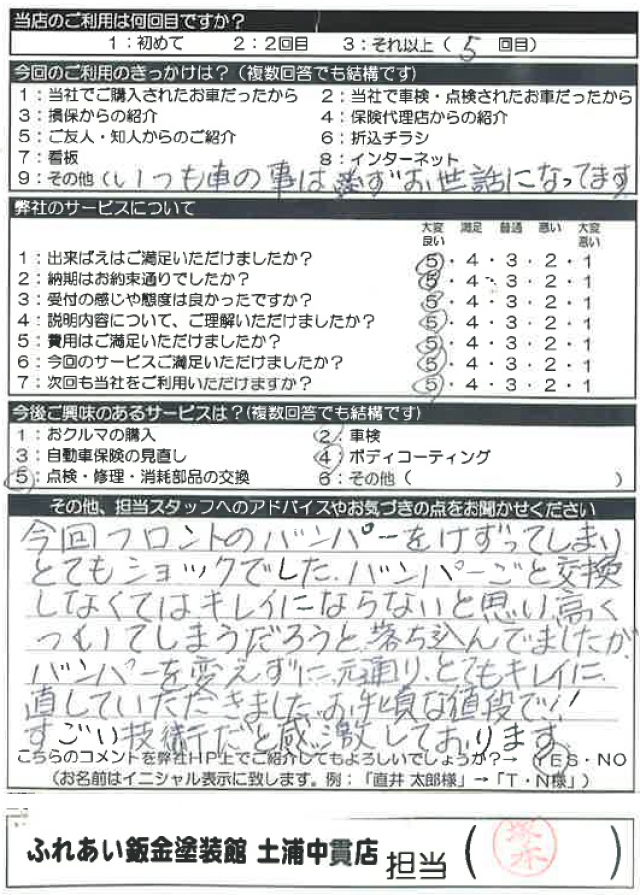 当店のご利用は何回目ですか？
1：初めて　2：2回目　3：それ以上（ 5 回目）
今回のご利用のきっかけは？（複数回答でも結構です）
1：当社でご購入されたお車だったから　2：当社で車検・点検されたお車だったから
3：損保からの紹介　4：保険代理店からの紹介
5：ご友人・知人からのご紹介　6：折込チラシ
7：看板　8：インターネット
9：その他（いつも車の事は必ずお世話になってます
弊社のサービスについて
大変良い　満足　普通　悪い　大変悪い
1：出来ばえはご満足いただけましたか？　5・4・3・2・1
2：納期はお約束通りでしたか？　5・4・3・2・1
3：受付の感じや態度は良かったですか？　5・4・3・2・1
4：説明内容について、ご理解いただけましたか？　5・4・3・2・1
5：費用はご満足いただけましたか？　5・4・3・2・1
6：今回のサービスご満足いただけましたか？　5・4・3・2・1
7：次回も当社をご利用いただけますか？　5・4・3・2・1
今後ご興味のあるサービスは？（複数回答でも結構です）
1：おクルマの購入　2：車検
3：自動車保険の見直し　4：ボディコーティング
5：点検・修理・消耗部品の交換　6：その他（　）
その他、担当スタッフへのアドバイスやお気づきの点をお聞かせください
今回フロントのバンパーをけずってしまい
とてもショックでした、バンパーごと交換
しなくてはキレイにならないと思い高く
ついてしまうだろうと、落ち込んでましたが、
バンパーを変えずに、元通り、とてもキレイに
直していただきました。お手頃な値段で！！
すごい技術だと感激しております。
こちらのコメントを弊社HP上でご紹介してもよろしいでしょうか？→ YES・NO
（お名前はイニシャル表示に致します。例：「直井 太郎様」→「T・N様」）
ふれあい鈑金塗装館 土浦中貫店 担当（ 塚本 ）